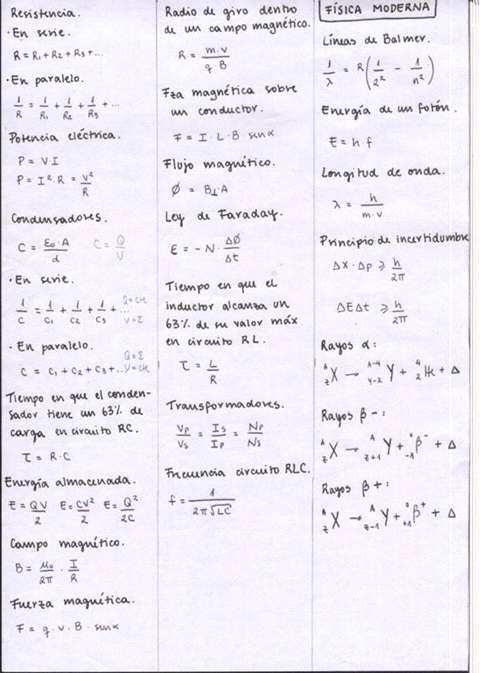 Resistencia.
·En serie.
R = R₁ + R₂ + R₃ + ...
·En paralelo.
1/R = 1/R₁ + 1/R₂ + 1/R₃ + ...
Potencia eléctrica.
P = V·I
P = I²·R = V²/R
Condensadores.
C = ε₀·A/d C = Q/V
·En serie.
1/C = 1/C₁ + 1/C₂ + 1/C₃ + ... Q=cte V=Σ
·En paralelo.
C = C₁ + C₂ + C₃ + ... Q=Σ V=cte
Tiempo en que el conden-
sador tiene un 63% de
carga en circuito RC.
τ = R·C
Energía almacenada.
E = QV/2 E = CV²/2 E = Q²/2C
Campo magnético.
B = μ₀/2π · I/R
Fuerza magnética.
F = q·v·B·senα
Radio de giro dentro
de un campo magnético.
R = m·v/q·B
Fza magnética sobre
un conductor.
F = I·L·B senα
Flujo magnético.
Ø = B⊥·A
Ley de Faraday.
ε = -N·ΔØ/Δt
Tiempo en que el
inductor alcanza un
63% de su valor máx
en circuito RL.
τ = L/R
Transformadores.
Vp/Vs = Is/Ip = Np/Ns
Frecuencia circuito RLC.
f = 1/2π√LC
FÍSICA MODERNA
Líneas de Balmer.
1/λ = R(1/2² - 1/n²)
Energía de un fotón.
E = h f
Longitud de onda.
λ = h/m·v
Principio de incertidumbre
Δx·Δp ≥ h/2π
ΔEΔt ≥ h/2π
Rayos α:
ᴬzX → ᴬ⁻⁴z-2Y + ⁴₂He + Δ
Rayos β-:
ᴬzX → ᴬz+1Y + ⁰-1β⁻ + Δ
Rayos β+:
ᴬzX → ᴬz-1Y + ⁰+1β⁺ + Δ